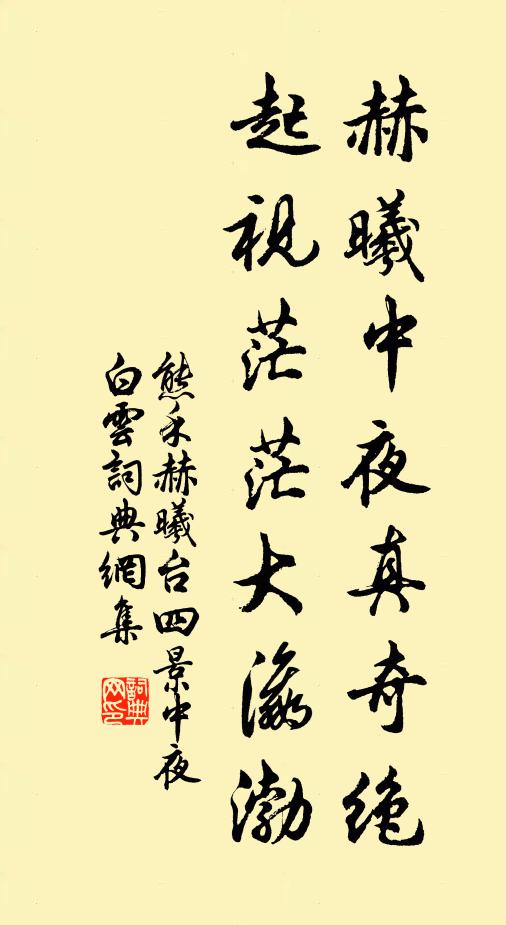 赫曦中夜真奇绝
起視茫茫大瀛渤
熊禾赫曦台四景中夜
白雲詞典網集
詞典
网印